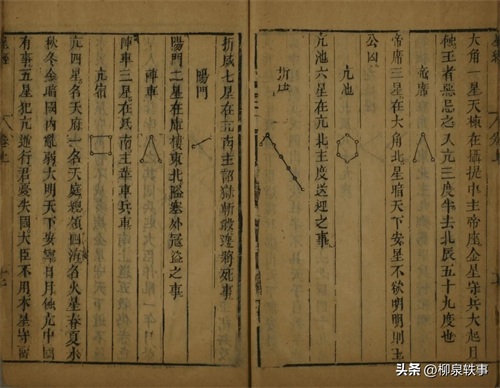 大角一星天棟在攝提中主帝座金星守兵大起日
蝕王者惡忌之入亢三度半去北辰五十九度也
帝席
帝席三星在大角北星暗天下安星不欲明明則王
公凶
亢池
亢池六星在亢北主度送迎之事
折威
折威七星在亢南主詔獄斬殺邊將死事
陽門
陽門二星在庫樓東北隘塞外寇盜之事
陣車
陣車三星在氐南主革車兵車
亢宿
亢四星名天府一名天庭總領四海名火星春夏水
秋冬金暗國內亂弱大明天下安寧日月蝕亢中國
有事五星犯亢逆行君憂失國大臣不用本星守而
頭条 @柳泉轶事